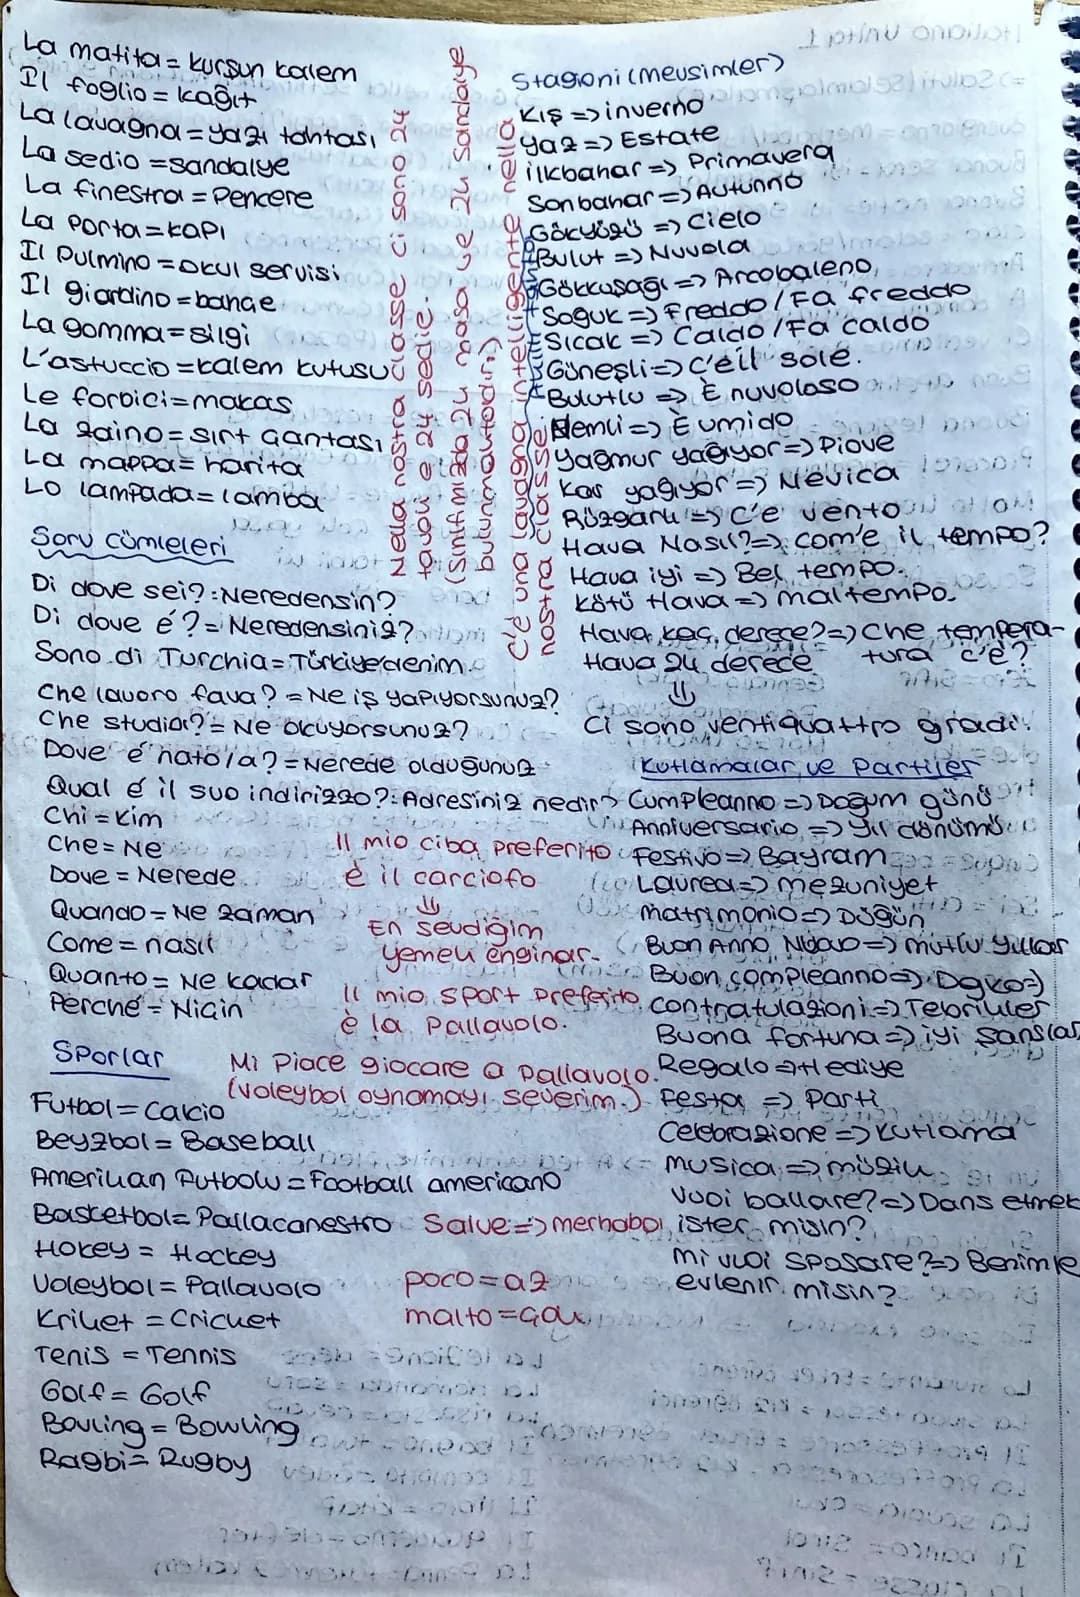 La matita = kurşun kalem
Il foglio = kağıt
La lavagna = yazı tahtası
La sedio = sandalye
La finestra = Pencere
La porta = kapı
Il Pulmino = okul servisi
Il giardino = bahçe
La gomma = silgi
L'astuccio = kalem kutusu
Le forbici = makas
La zaino = sırt çantası
La mappa = harita
Lo lampada = lamba
Soru cümleleri
Di dove sei? : Neredensin?
Di dove é? = Neredensiniz?
Sono di Turchia = Türkiyedenim.
Che lavoro fava? = Ne iş yapıyorsunuz?
Che studia? = Ne okuyorsunuz?
Dove é nato/a? = Nerede olduğunuz
Qual é il suo indirizzo? : Adresiniz nedir?
Chi = Kim
Che = Ne
Dove = Nerede
Quando = Ne zaman
Come = nasıl
Quanto = Ne kadar
Perché = Niçin
Sporlar
Futbol = Calcio
Beyzbol = Baseball
Amerikan Futbolu = Football americano
Basketbol = Pallacanestro
Hokey = Hockey
Voleybol = Pallavolo
Kriket = Cricket
Tenis = Tennis
Golf = Golf
Bovling = Bowling
Ragbi = Rugby
Nella nostra classe ci sono 24
tavoli e 24 sedie.
(Sınıfımızda 24 masa ve 24 Sandalye
bulunmaktadır.)
C'è una lavagna intelligente nella
nostra classe.
Il mio ciba preferito
è il carciofo
⇓
En sevdiğim
yemek enginar.
Il mio sport preferito
è la Pallavolo.
Mi Piace giocare a pallavolo.
(voleybol oynamayı severim.)
Salve => merhaba
poco = az
malto = çok
Stagioni (mevsimler)
Kış => inverno
yaz => Estate
ilkbahar => Primavera
Sonbahar => Autunno
Gökyüzü => Cielo
Bulut => Nuvola
Gökkuşağı => Arcobaleno
Soğuk => Freddo / Fa freddo
Sıcak => Caldo / Fa caldo
Güneşli => C'éil sole.
Bulutlu => È nuvoloso
Nemli => È umido
Yağmur yağıyor => Piove
Kar yağıyor => Nevica
Rüzgarlı => C'e vento
Hava Nasıl? => com'e il tempo?
Hava iyi => Bel tempo.
Kötü Hava => maltempo.
Hava kaç derece? => Che tempera-
tura c'è?
Hava 24 derece
⇓
Ci sono ventiquattro gradi.
Kutlamalar ve Partiler
Cumpleanno => Doğum günü
Anniversario => Yıl dönümü
Festivo => Bayram
Laurea => mezuniyet
matrimonio => Düğün
Buon Anno Nuovo => mutlu yıllar
Buon compleanno => Dgko=)
Contratulazioni => Tebrikler
Buona fortuna => iyi şanslar
Regallo => Hediye
Festa => Parti
Celebrazione => kutlama
musica => müzik
Vuoi ballare? => Dans etmek
ister misin?
mi vuoi sposare? => Benimle
evlenir misin?